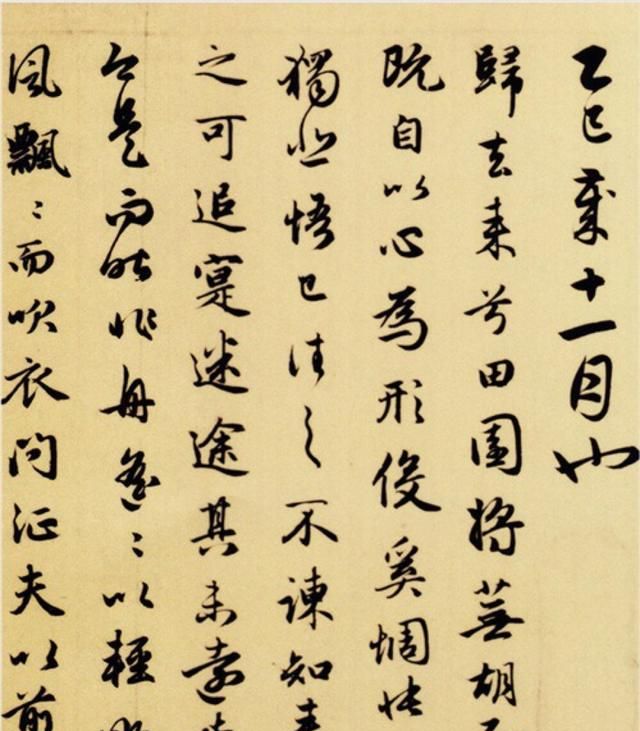 乙巳歲十一月也
歸去來兮田園將蕪胡
既自以心為形役奚惆悵
獨悲悟已往之不諫知來
之可追寔迷途其未遠
今是而昨非舟遙〻以輕
風飄〻而吹衣問征夫以前